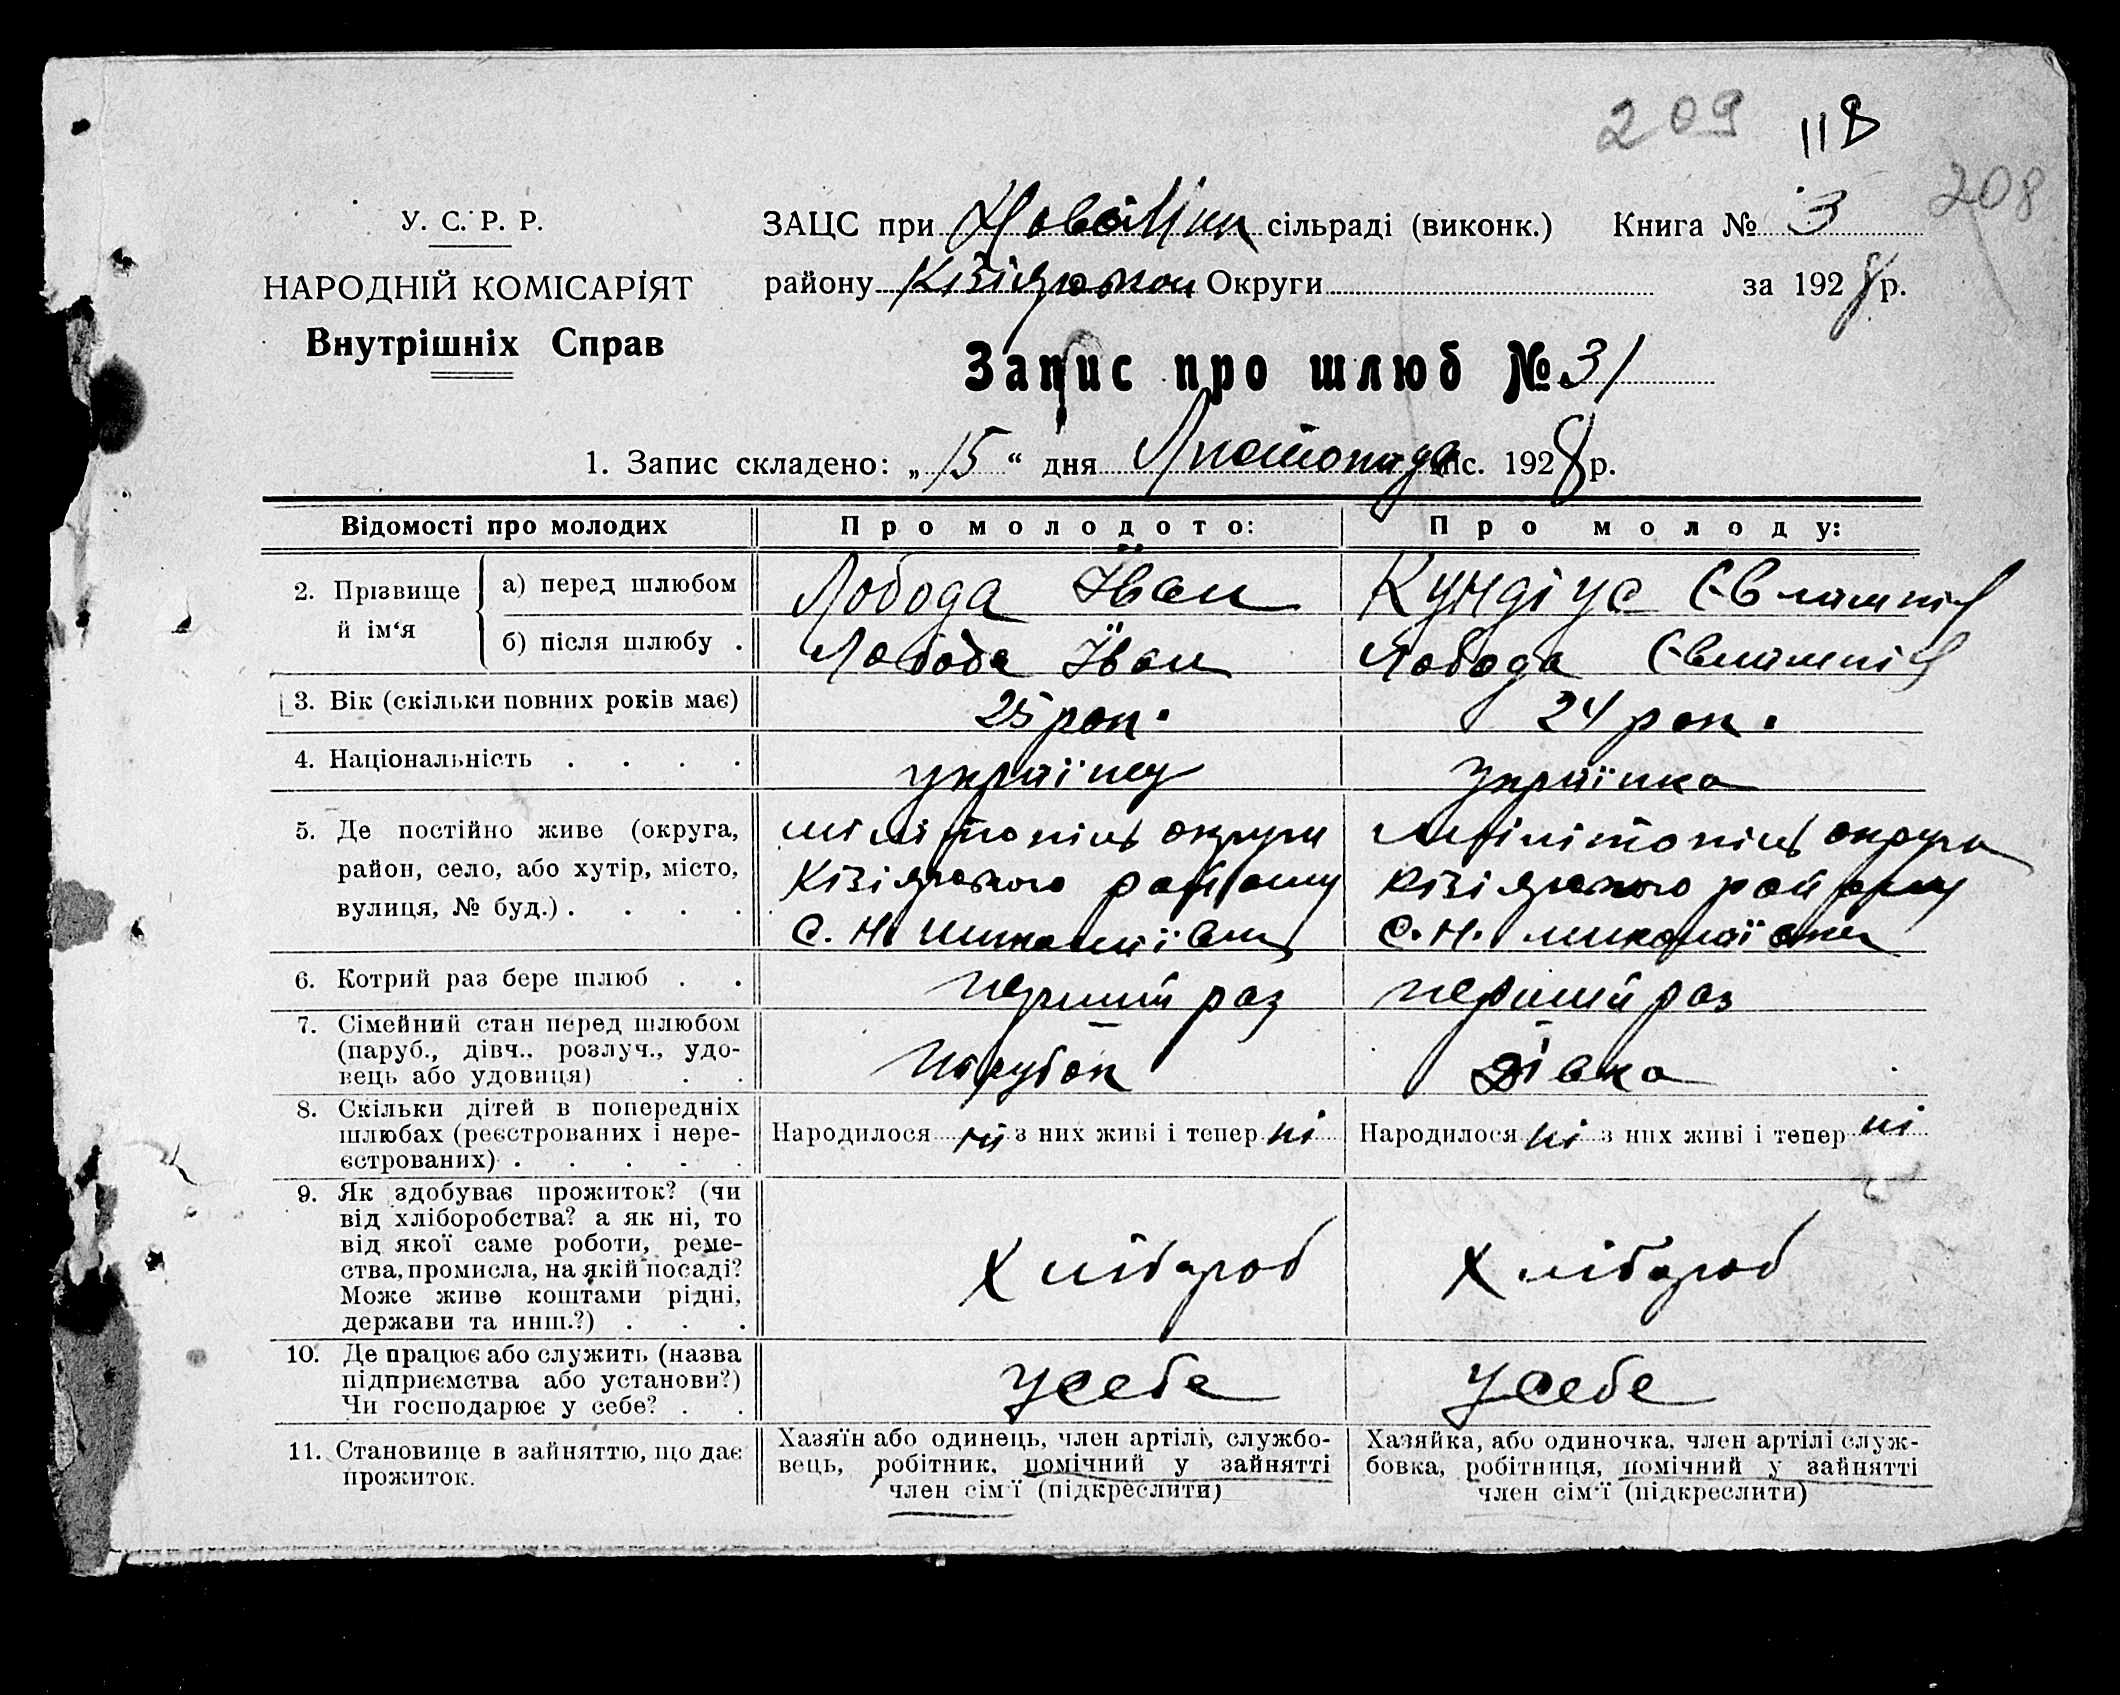 209 118
208
У. С. Р. Р.
НАРОДНІЙ КОМІСАРІЯТ
Внутрішніх Справ
ЗАЦС при сільраді (виконк.) Книга № 3
району Округи за 1928 р.
Запис про шлюб № 31
1. Запис складено: „ 15 “ дня Листопада міс. 1928 р.
Відомості про молодих Про молодого: Про молоду:
2. Прізвище й ім‘я
а) перед шлюбом Лобода Іван Кундіус Євлампія
б) після шлюбу . Лобода Іван Лобода Євлампія
3. Вік (скільки повних років має) 25 рок. 24 рок.
4. Національність . . . . україну Українка
5. Де постійно живе (округа,
район, село, або хутір, місто,
вулиця, № буд.) . . . .
мілітопіль округи
Кізіярського району
С. Н.
Мілітопіль округи
Кізіярського району
С. Н. миколаївки
6. Котрий раз бере шлюб . . перший раз перший раз
7. Сімейний стан перед шлюбом
(паруб., дівч., розлуч., удо-
вець або удовиця) . .
Парубок Дівка
8. Скільки дітей в попередніх
шлюбах (реєстрованих і нере-
єстрованих) . . . . .
Народилося ні з них живі і тепер ні
Народилося ні з них живі і тепер ні
9. Як здобуває прожиток? (чи
від хліборобства? а як ні, то
від якої саме роботи, реме-
ства, промисла, на якій посаді?
Може живе коштами рідні,
держави та инш.?) . . .
Хлібороб Хлібороб
10. Де працює або служить (назва
підприємства або установи?)
Чи господарює у себе? . .
У себе У себе
11. Становище в зайняттю, що дає
прожиток.
Хазяїн або одинець, член артілі, службо-
вець, робітник, помічний у зайнятті
член сім‘ї (підкреслити)
Хазяйка, або одиночка, член артілі служ-
бовка, робітниця, помічний у зайнятті
член сім‘ї (підкреслити)